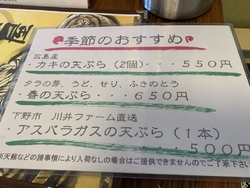 季節のおすすめ
広島産
・カキの天ぷら(2個)・・・550円
タラの芽、うど、せり、ふきのとう
・春の天ぷら・・・650円
下野市 川井ファーム直送
・アスパラガスの天ぷら(1本)
・・・500円
天候などの諸事情により入荷なしの場合はご提供できませんのでご了承下